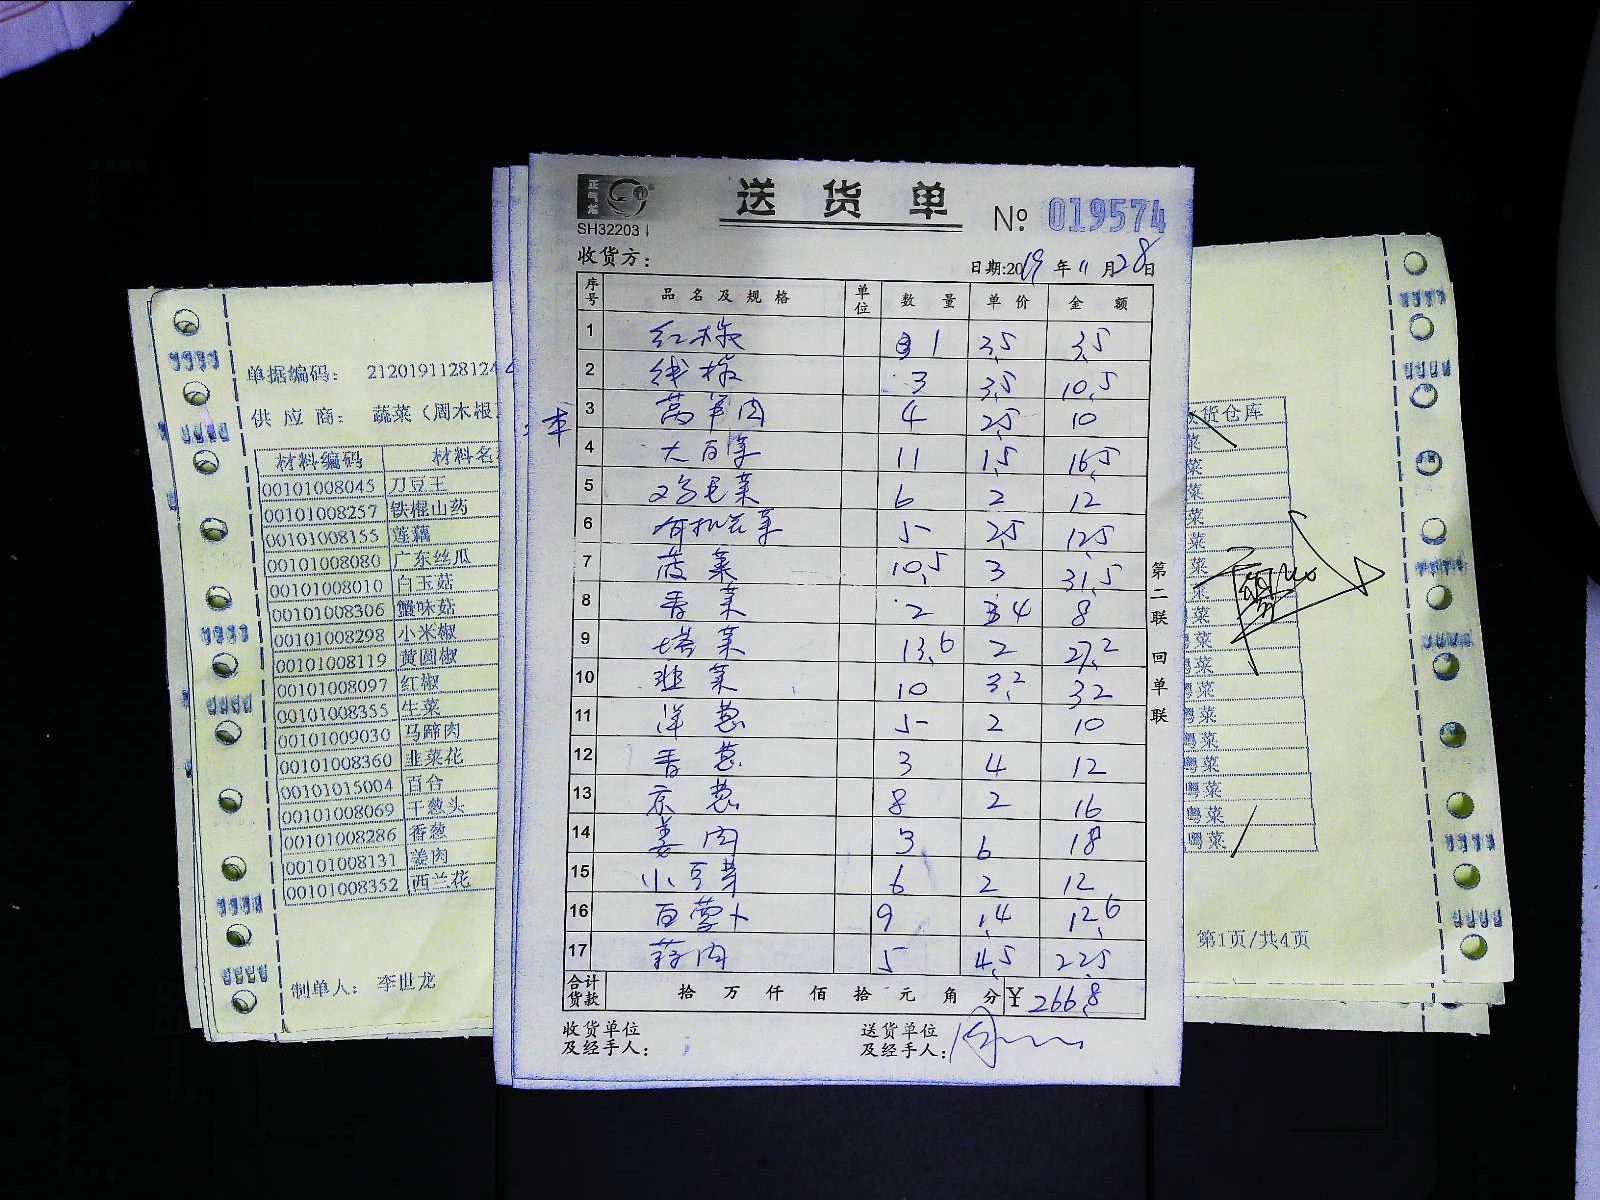 正气龙
SH32203
送货单
№ 019574
收货方：
日期:2019年11月28日
序号 品名及规格 单位 数量 单价 金额
1 红椒 1 3.5 3.5
2 线椒 3 3.5 10.5
3 莴笋肉 4 2.5 10
4 大白菜 11 1.5 16.5
5 鸡毛菜 6 2 12
6 有机花菜 5 2.5 12.5
7 菠菜 10.5 3 31.5
8 香菜 2 4 8
9 塔菜 13.6 2 27.2
10 韭菜 10 3.2 32
11 洋葱 5 2 10
12 香葱 3 4 12
13 京葱 8 2 16
14 姜肉 3 6 18
15 小豆芽 6 2 12
16 白萝卜 9 1.4 12.6
17 蒜肉 5 4.5 22.5
合计货款 拾万仟佰拾元角分 ¥ 266.8
收货单位及经手人：
送货单位及经手人：
第二联 回单联
单据编码： 212019112812
供应商： 蔬菜（周木根
材料编码 材料名
00101008045 刀豆王
00101008257 铁棍山药
00101008155 莲藕
00101008080 广东丝瓜
00101008010 白玉菇
00101008306 蟹味菇
00101008298 小米椒
00101008119 黄圆椒
00101008097 红椒
00101008355 生菜
00101009030 马蹄肉
00101008360 韭菜花
00101015004 百合
00101008069 干葱头
00101008286 香葱
00101008131 姜肉
00101008352 西兰花
制单人： 李世龙
货仓库
菜
菜
菜
菜
菜
菜
菜
菜
菜
菜
粤菜
粤菜
粤菜
粤菜
粤菜
粤菜
粤菜
第1页/共4页